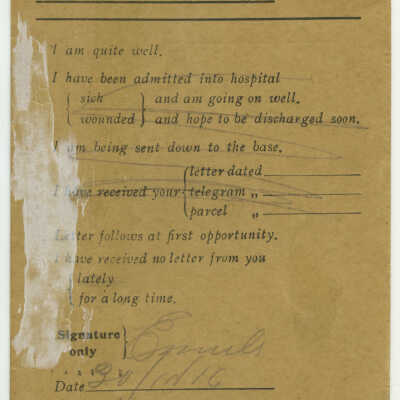 I am quite well.
I have been admitted into hospital
sick and am going on well.
wounded and hope to be discharged soon.
I am being sent down to the base.
letter dated
I have received your telegram „
parcel „
Letter follows at first opportunity.
I have received no letter from you
lately
for a long time.
Signature
only
Date 30/10/16